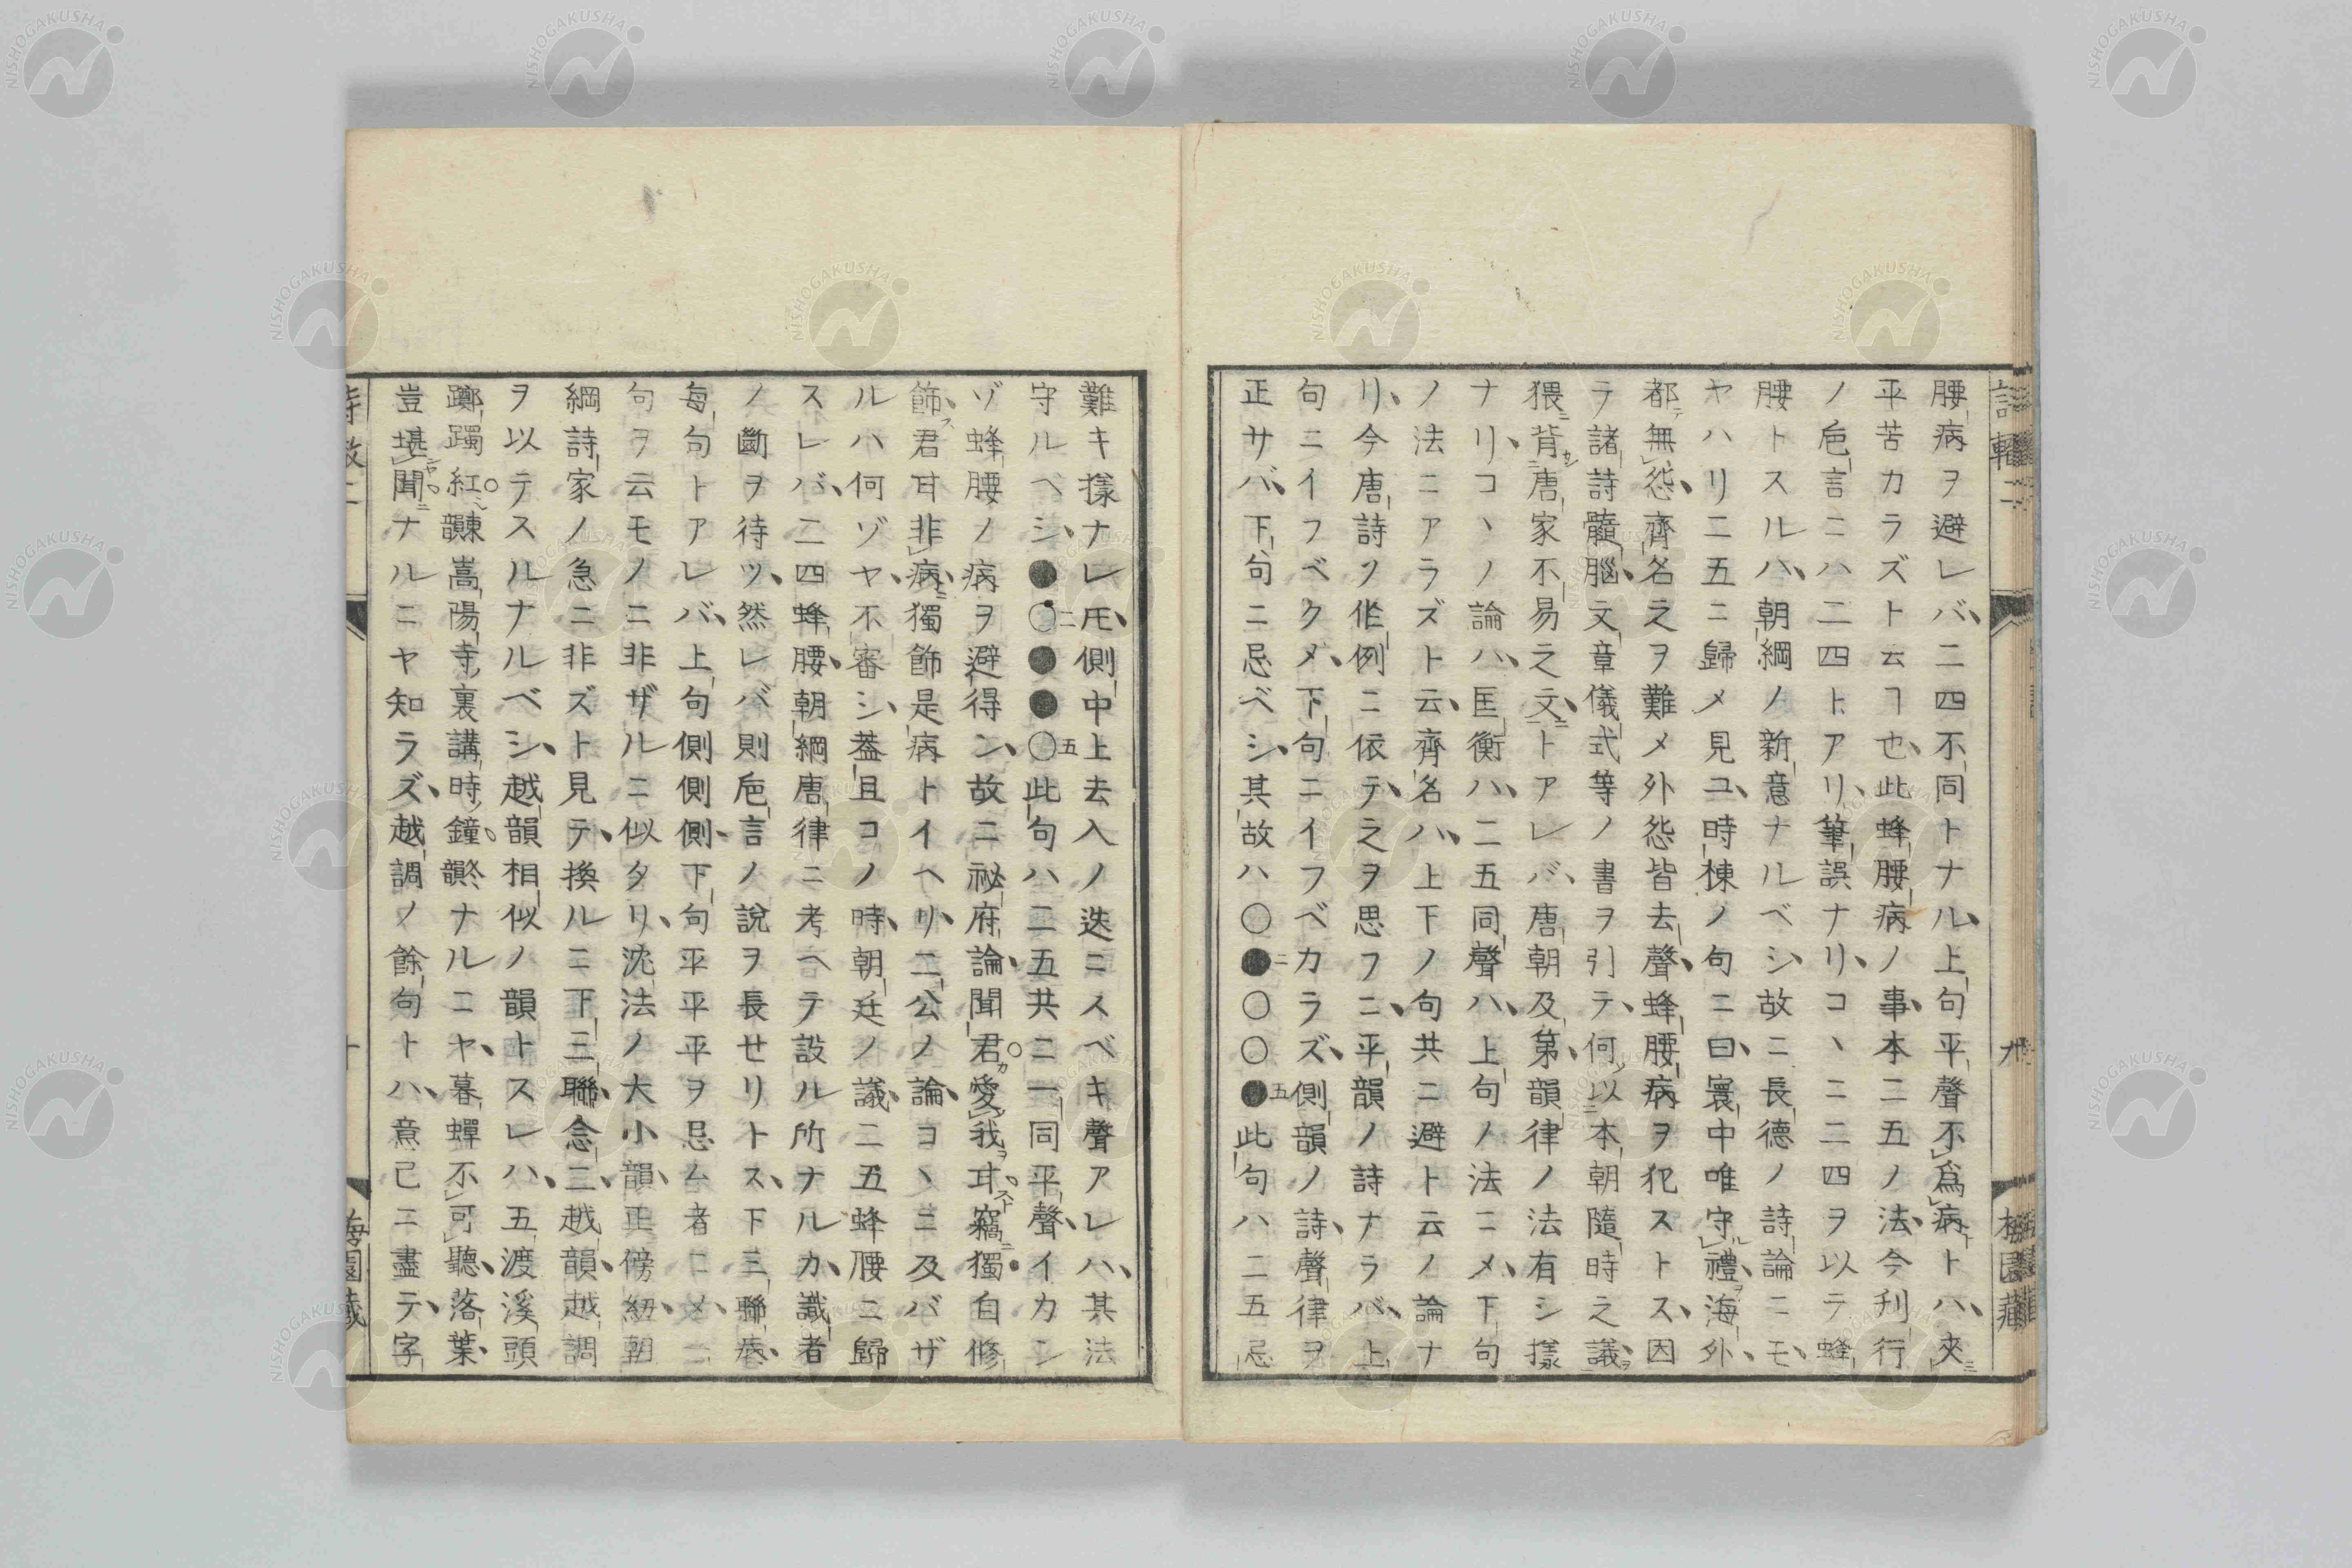 腰病ヲ避レバ、二四不同トナル、上句平聲不爲病トハ、夾
平苦カラズト云ヿ也、此蜂腰病ノ事本二五ノ法今刋行
ノ巵言ニハ二四トアリ、筆誤ナリ、コヽニ二四ヲ以テ蜂
腰トスルハ、朝綱ノ新意ナルベシ、故ニ長德ノ詩論ニモ、
ヤハリ二五ニ歸メ見ユ、時棟ノ句ニ曰、寰中唯守禮、海外、
都無怨、齊名之ヲ難メ外怨皆去聲、蜂腰病ヲ犯ストス、因
ラ諸詩髓腦、文章儀式等ノ書ヲ引テ、何以本朝隨時之議、
猥背唐家不易之文、トアレバ、唐朝及第、韻律ノ法有シ樣
ナリ、コヽノ論ハ、匡衡ハ、二五同聲ハ、上句ノ法ニメ、下句
ノ法ニアラズト云、齊名ハ、上下ノ句共ニ避ト云ノ論ナ
リ、今唐詩ノ作例ニ依テ、之ヲ思フニ、平韻ノ詩ナラバ、上
句ニイフベクメ、下句ニイフベカラズ、側韻ノ詩、聲律ヲ
正サバ、下句ニ忌ベシ、其故ハ〇●二〇〇●五此句ハ二五忌
難キ樣ナレ𪜈、側中上去入ノ迭ニスベキ聲アレハ、其法
守ルベシ、●〇二●●〇五此句ハ二五共ニ一同平聲、イカン
ゾ蜂腰ノ病ヲ避得ン、故ニ祕府論、聞君愛我甘、竊獨自修
飾、君甘非病、獨飾是病トイヘリ、二公ノ論、コヽニ及バザ
ルハ何ゾヤ、不審シ、葢且コノ時、朝廷ノ議、二五蜂腰ニ歸
スレバ、二四蜂腰、朝綱唐律ニ考ヘテ設ル所ナルカ、識者
ノ斷ヲ待ツ、然レバ則巵言ノ說ヲ長セリトス、下三聯病、
每句トアレバ、上句側側側、下句平平平ヲ忌ム者ニメ、二
句ヲ云モノニ非ザルニ似タリ、沈法ノ大小韻、正傍紐、朝
綱詩家ノ急ニ非ズト見テ、換ルニ下三聯、念二、越韻、越調
ヲ以テスルナルベシ、越韻相似ノ韻トスレハ、五渡溪頭
躑躅紅、東韻嵩陽寺裏講時鐘、冬韻ナルニヤ、暮蟬不可聽、落葉、
豈堪聞ナルニヤ知ラズ、越調ノ餘句トハ、意已ニ盡テ、字